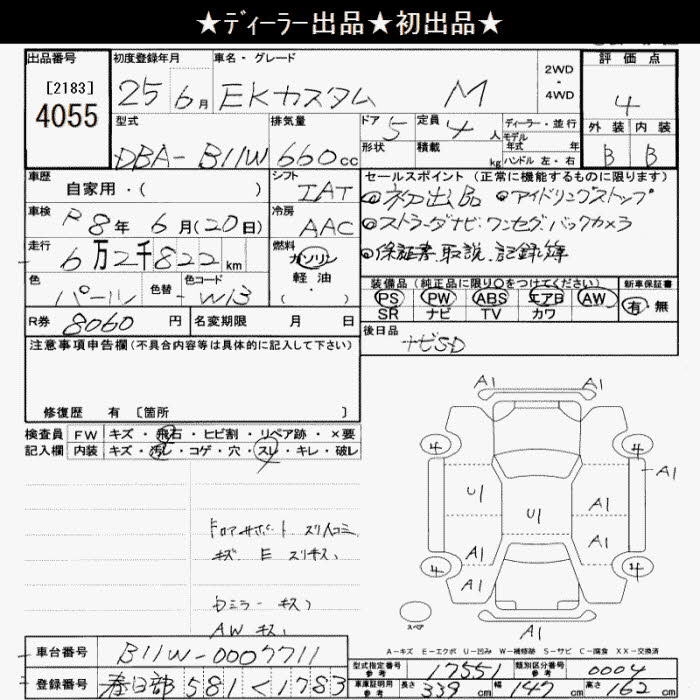 ★ディーラー出品★初出品★
出品番号 初度登録年月 車名・グレード 2WD・4WD 評価点
[2183]
4055
25 6月 EKカスタム M 4
型式 排気量 ドア 5 定員 4人 ディーラー・並行 外装 内装
モデル年式 年
DBA-B11W 660cc 形状 積載 kg ハンドル 左・右 B B
車歴 シフト セールスポイント (正常に機能するものに限ります)
自家用・( ) IAT ◎初出品 ◎アイドリングストップ
車検 R8年 6月(20日) 冷房 AAC ◎ストラーダナビ.ワンセグ.バックカメラ
走行 6万2千822km 燃料 ガソリン ◎保証書.取説.記録簿
軽油
・( )
色 パール 色替 色コード W13 装備品 (純正品に限り○をつけてください) 新車保証書
PS PW ABS エアB AW 有・無
SR ナビ TV カワ
R券 8060円 名変期限 月 日 後日品
ナビSD
注意事項申告欄 (不具合内容等は具体的に記入して下さい)
修復歴 有 [箇所 ]
検査員 FW キズ・飛石・ヒビ割・リペア跡・×要
記入欄 内装 キズ・汚レ・コゲ・穴・スレ・キレ・破レ
A1 A1
4 4
A1
U1 U1 A1
A1 A1
4 4
A1 A1
スペア A1
キズ
AW キズ
A-キズ E-エクボ U-凹み W-補修跡 S-サビ C-腐食 XX-交換済
車台番号 B11W-0007711
型式指定番号 参考 17551 類別区分番号 参考 0004
登録番号 春日部 581 く 1783
車庫証明用 参考 長さ 339cm 幅 147cm 高さ 162cm